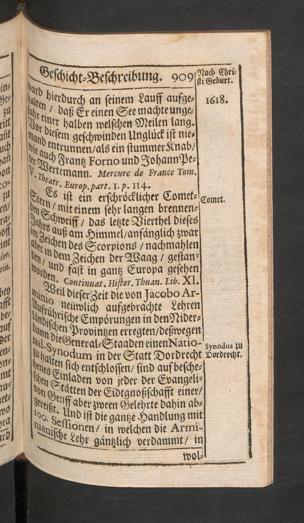 Geschicht-Beschreibung. 909
Nach Chri-
sti Geburt.
1618.
ward hierdurch an seinem Lauff aufge-
halten / daß Er einen See machte unge-
fehr einer halben welschen Meilen lang.
Vor diesem geschwinden Unglück ist nie-
mand entrunnen / als ein stummer Knab /
wie auch Franz Forno und Johann Pe-
ter Wertemann. Mercure de France Tom.
V. Theatr. Europ. part. 1. p. 114.
Es ist ein erschröcklicher Comet-
Stern / mit einem sehr langen brennen-
den Schweiff / das letzte Vierthel dieses
Jahrs auß am Himmel / anfänglich zwar
im Zeichen des Scorpions / nachmahlen
aber in dem Zeichen der Waag / gestan-
den / und fast in gantz Europa gesehen
worden. Continuat. Histor. Thuan. Lib. XI.
Comet.
Weil dieser Zeit die von Jacobo Ar-
minio neuwlich aufgebrachte Lehren
aufrührische Empörungen in den Nider-
ländischen Provintzen erregten / deßwegen
dann die General-Staaden einen Natio-
nal-Synodum in der Statt Dordrecht
zu halten sich entschlossen / sind auf besche-
henes Einladen von jeder der Evangeli-
schen Stätten der Eidtgnoßschafft einer /
von Genff aber zween Gelehrte dahin ab-
gereißt. Und ist die gantze Handlung mit
100. Sessionen / in welchen die Armi-
nianische Lehr gäntzlich verdammt / in
Synodus zu
Dordrecht.
wol-